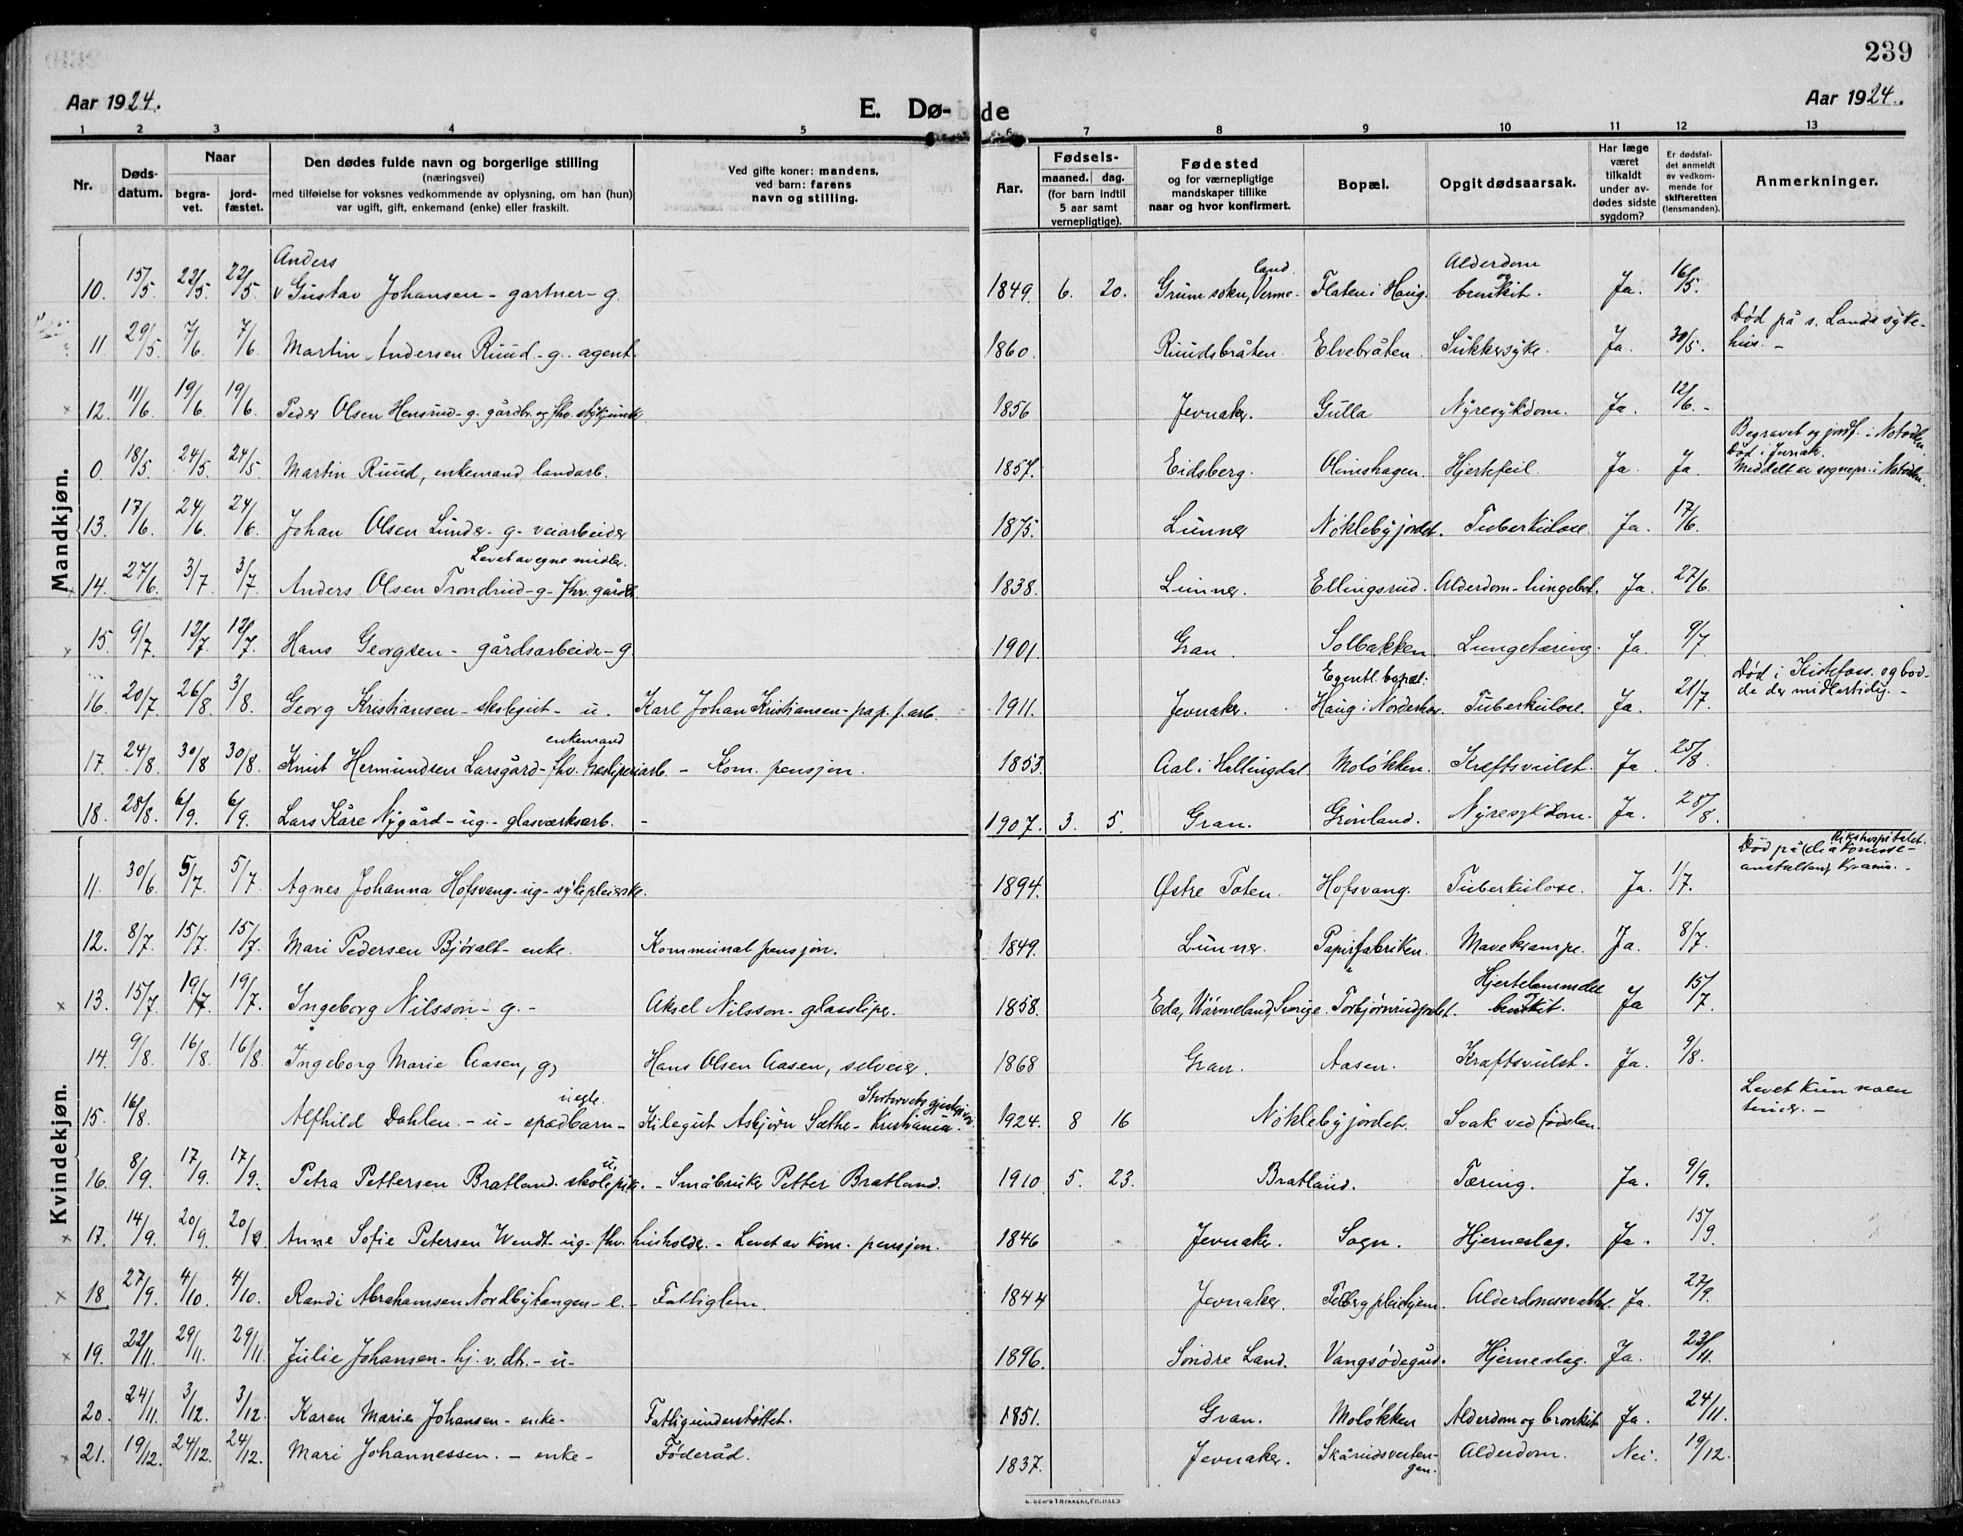 239
Aar 1924.
E. Dø- de
Aar 1924.
1 2 3 4 5 6 7 8 9 10 11 12 13
Nr.
Døds-
datum.
Naar
begra-
vet.
jord-
fæstet.
Den dødes fulde navn og borgerlige stilling
(næringsvei)
med tilføielse for voksnes vedkommende av oplysning, om han (hun)
var ugift, gift, enkemand (enke) eller fraskilt.
Ved gifte koner: mandens,
ved barn: farens
navn og stilling.
Aar.
Fødsels-
maaned. dag.
(for barn indtil
5 aar samt
vernepligtige).
Fødested
og for værnepligtige
mandskaper tillike
naar og hvor konfirmert.
Bopæl.
Opgit dødsaarsak.
Har læge
været
tilkaldt
under av-
dødes sidste
sygdom?
Er dødsfal-
det anmeldt
av vedkom-
mende for
skifteretten
(lensmanden).
Anmerkninger.
Mandkjøn.
Anders land. Alderdom og
10. 15/5 22/5. 22/5. v Gustav Johansen - gartner - g. 1849. 6. 20. Grums sokn, Verme- Flaten i Haug. bronkit. Ja. 16/5.
Død på s. Lands syke-
11 29/5 7/6. 7/6 Martin Andersen Ruud - g. agent. 1860. Ruudsbråten. Elvebråten. Sukkersyke. Ja. 30/5. hus. -
12. 11/6. 19/6 19/6. Peder Olsen Hensrud - g. gårdbr. og fhv. 1856 Jevnaker. Gulla Nyresykdom. Ja. 12/6. -
Begravet og jordf. i Notodden
Død i Jevnak.
0 18/5 24/5. 24/5 Martin Ruud, enkemand landarb. 1857. Eidsberg. Olimshagen. Hjertefeil. Ja Ja. Meddelt av sognepr. i Notodden.
13. 17/6. 24/6 24/6. Johan Olsen Lunder - g - veiarbeider 1875. Lunner Nøklebyjordet. Tuberkulose. Ja. 17/6.
Levet av egne midler.
14. 27/6. 3/7 3/7 Anders Olsen Trondrud - g - fhv. gårdbr. 1838. Lunner. Ellingsrud. Alderdom - lungebet. Ja. 27/6.
15. 9/7. 12/7. 12/7. Hans Georgsen - gårdsarbeider - g. 1901. Gran. Solbakken. Lungetæring. Ja. 9/7
Egentl. bopæl: Død i Kistefoss. og bod-
16. 20/7. 26/8 3/8. Georg Kristiansen - skolegut - u. Karl Johan Kristiansen - pap. f. arb. 1911. Jevnaker. Haug i Norderhov. Tuberkulose. Ja. 21/7. de der midlertidig. -
enkemand
17. 24/8. 30/8 30/8. Knut Hermundsen Larsgård - fhv. træsliperiarb. - Kom. pensjon. 1853. Aal i Hallingdal Moløkken. Kræftsvulst. Ja. 25/8
18. 28/8. 6/9. 6/9. Lars Kåre Nygård - ug. - glasværksarb. - 1907. 3. 5. Gran. Grønland. Nyresykdom. Ja. 28/8.
Kvindekjøn.
Rikshospitalet.
Død på diakonisse-
11. 30/6 5/7 5/7. Agnes Johanna Hofsvang - ug - sykepleierske. 1894. Østre Toten. Hofsvang. Tuberkulose. Ja. 1/7. anstalten, Kr.ania. -
12. 8/7. 15/7. 15/7. Mari Pedersen Bjøralt - enke. Kommunal pensjon. 1849. Lunner. Papirfabriken. Mavekrampe. Ja 8/7.
Hjertelammelse
13. 15/7. 19/7 19/7. Ingeborg Nilsson - g. - Aksel Nilsson - glassliper. 1858. Eda, Wärmeland, Sverige. Torbjørnrudjordet. bronkit. Ja 15/7
14. 9/8. 16/8. 16/8. Ingeborg Marie Aasen, g, Hans Olsen Aasen, selveier. 1868 Gran. Aasen. Kræftsvulst. Ja. 9/8.
uegte. Levet kun noen
15. 16/8. Alfhild Dahlen. - u - spædbarn - Kilegut Asbjørn Sæthe - Kristiania. 1924. 8 16 Nøklebyjordet. Svak ved fødslen. timer. -
16. 8/9. 17/9. 17/9. Petra Pettersen Bratland. skolepike. u. - Småbruker Petter Bratland. 1910 5. 23. Bratland. Tæring. Ja. 9/9.
17. 14/9. 20/9. 20/9. Anne Sofie Petersen Wendt - ug - fhv. husholder. - Levet av kom. pensjon. 1846 Jevnaker. Sogn. Hjerneslag. Ja. 15/9.
18 27/9. 4/10. 4/10. Randi Abrahamsen Nordbytangen - e. - Fattiglem. 1844 Jevnaker. Felberg pleiehjem. Alderdomssvakhet. Ja. 27/9.
19. 22/11. 29/11. 29/11. Julie Johansen - hj. v. dt. - u - 1896. Søndre Land. Vangsødegård. Hjerneslag. Ja. 23/11.
20. 24/11. 3/12. 3/12. Karen Marie Johansen - enke - Fattigunderstøttet. 1851. Gran. Moløkken Alderdom og bronkit Ja. 24/11.
21. 19/12. 24/12. 24/12. Mari Johannessen. - enke - Føderåd. 1837. Jevnaker. Skårudsverten- Alderdom. Nei. 19/12.
gen.